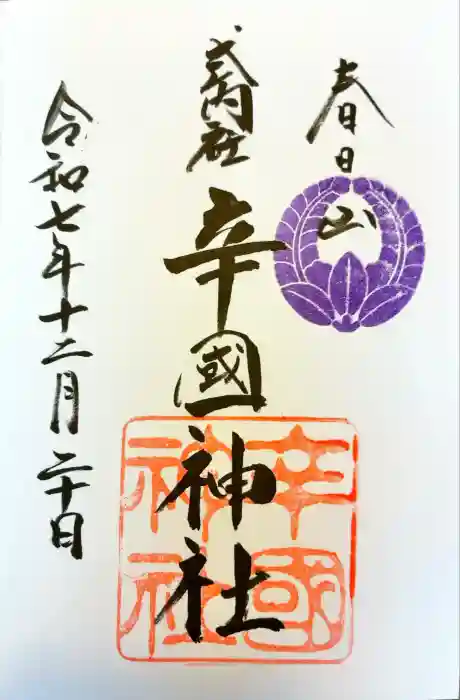 春日山
式内社
辛國神社
令和七年十二月二十日
辛國
神社